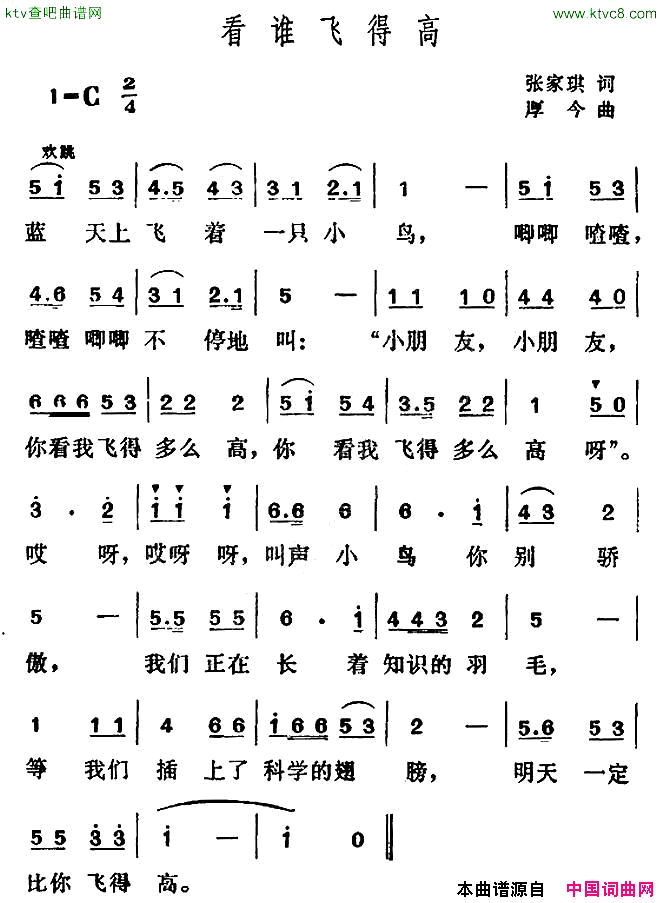 ktv查吧曲谱网
www.ktvc8.com
看谁飞得高
1=C 2/4
张家琪 词
厚今 曲
欢跳
5 i 5 3 | 4.5 4 3 | 3 1 2.1 | 1 — | 5 i 5 3 |
蓝 天上 飞 着 一只 小 鸟， 唧唧 喳喳，
4.6 5 4 | 3 1 2.1 | 5 — | 1 1 1 0 | 4 4 4 0 |
喳喳 唧唧 不 停地 叫： “小朋 友， 小朋 友，
6 6 6 5 3 | 2 2 2 | 5 i 5 4 | 3.5 2 2 | 1 5 0 |
你看我 飞得 多么 高， 你 看我 飞得 多么 高 呀”。
3 . 2 | i i i | 6.6 6 | 6 . i | 4 3 2 |
哎 呀， 哎呀 呀， 叫声 小 鸟 你 别 骄
5 — | 5.5 5 5 | 6 . i | 4 4 3 2 | 5 — |
傲， 我们 正在 长 着 知识的 羽 毛，
1 1 1 | 4 6 6 | i 6 6 5 3 | 2 — | 5.6 5 3 |
等 我们 插 上了 科学的 翅 膀， 明天 一定
5 5 3 3 | i — | i 0 ‖
比你 飞得 高。
本曲谱源自 中国词曲网